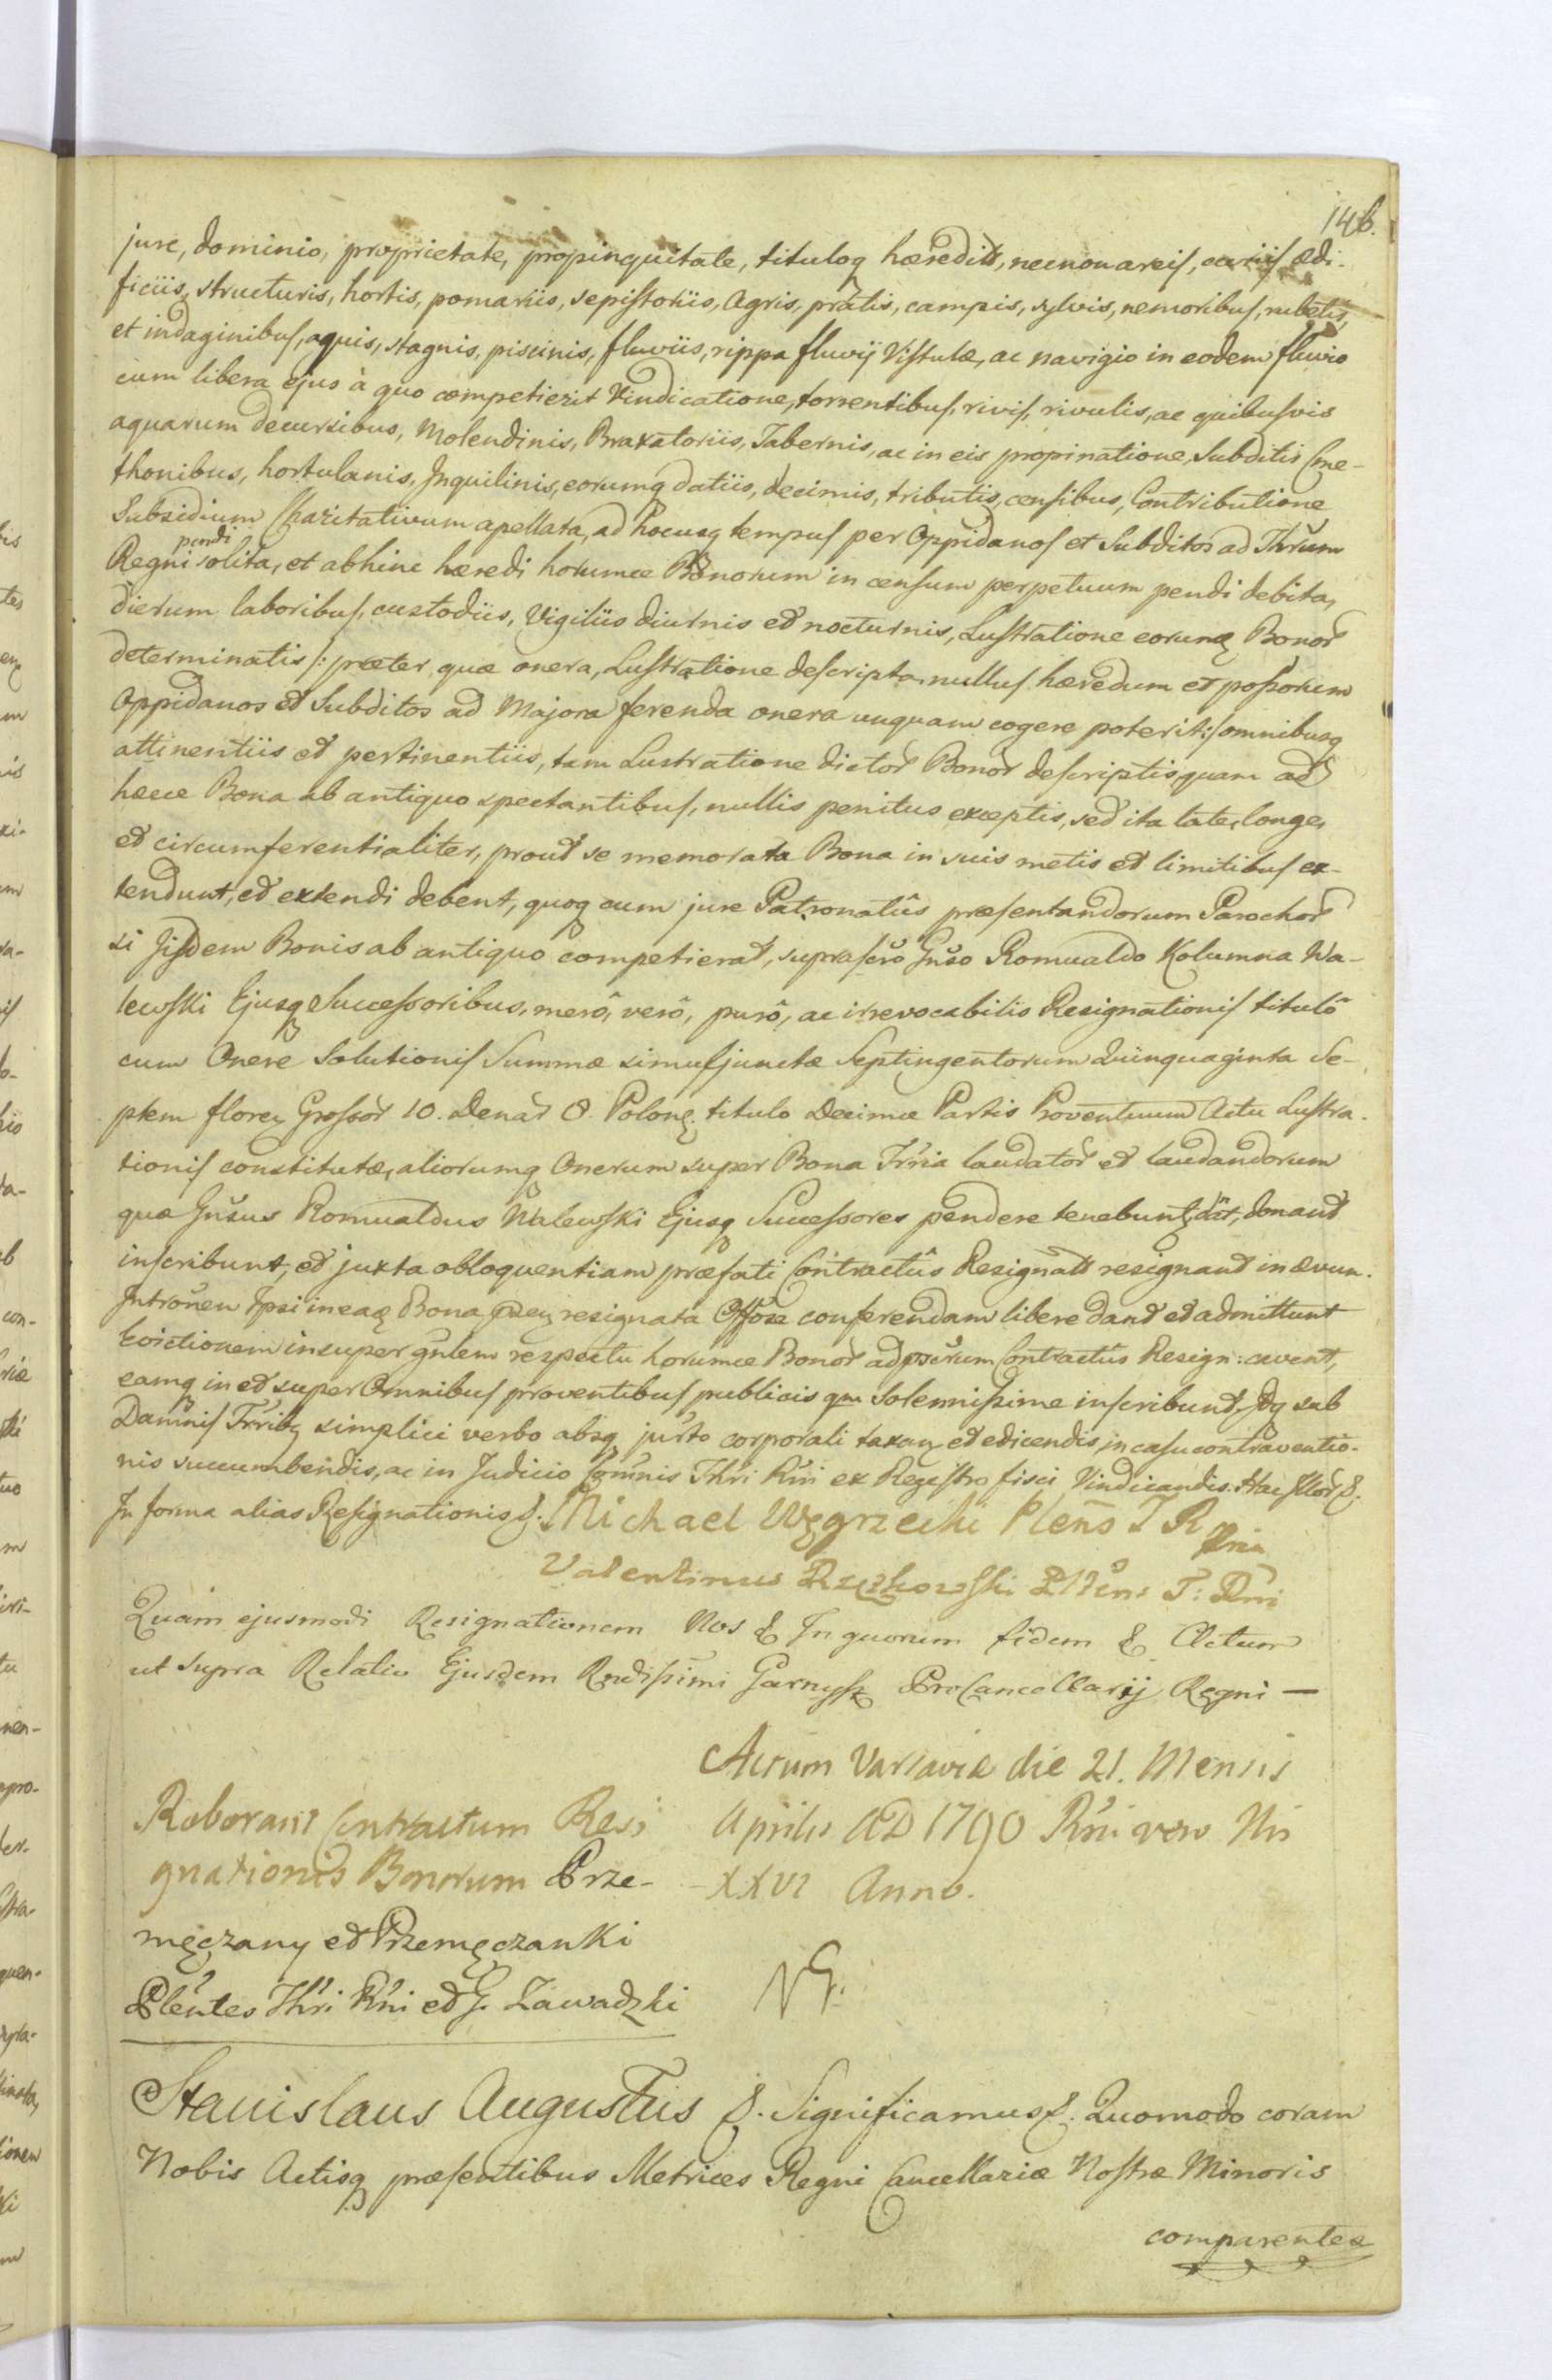 146.
jure, dominio, proprietate, propinquitate, tituloq hæredit̃, necnon areis, curiis ædi-
ficiis, structuris, hortis, pomariis, sepistoriis, Agris, pratis, campis, sylvis, nemoribus, rubetis,
et indaginibus, aquis, stagnis, piscinis, fluviis, rippa fluvij Vistulæ, ac navigio in eodem fluvio
cum libera ejus à quo competierit Vindicatione, torrentibus, rivis, rivulis, ac quibusvis
aquarum decursibus, Molendinis, Braxatoriis, Tabernis, ac in eis propinatione, Subditis Cme-
thonibus, hortulanis, Inquilinis, eorumq datiis, decimis, tributis, censibus, Contributione
Subsidium Charitativum apellata, ad hocusq tempus per Oppidanos et Subditos ad Thrũm
Regni pendi solita, et abhinc hæredi horumce Bonorum in censum perpetuum pendi debita,
dierum laboribus, custodiis, Vigiliis diurnis et nocturnis, Lustratione eorunq Bonor̃
determinatis /: præter quæ onera, Lustratione descripta, nullus hæredum et possorum
Oppidanos et Subditos ad Majora ferenda onera unquam cogere poterit :/ omnibusq
attinentiis et pertinentiis, tam Lustratione dictor̃ Bonor̃ descriptis, quam ad
hæce Bona ab antiquo spectantibus, nullis penitus exceptis, sed ita late, longe,
et circumferentialiter, prout se memorata Bona in suis metis et limitibus ex-
tendunt, et extendi debent, quoq cum jure Patronatûs præsentandorum Parochor̃
si Iisdem Bonis ab antiquo competierat, suprascr̃o Gñso Romualdo Kolumna Wa-
lewski Ejusq Successoribus, merô, verô, purô, ac irrevocabilis Resignationis titulô
cum Onere Solutionis Summæ simul junctæ Septingentorum Quinquaginta Se-
ptem floreņ Grossor̃ 10. Denar̃ 8. Polonq. titulo Decimæ Partis Proventuum Actu Lustra-
tionis constitutæ, aliorumq Onerum super Bona Trria laudator̃ et laudandorum
quæ Gñsus Romualdus Walewski Ejusq Successores pendere tenebunt̃, dãt, donant
inscribunt, et juxta obloquentiam præfati Contractûs Resignatt̃ resignant in ævum.
Intrõnem Ipsi in eaq Bona resignata Offõse conferendam libere dant et admittunt
Evictionem insuper gñlem respectu horumce Bonor̃ ad Contractus Resign: cavent,
eamq in et super Omnibus proventibus publicis qm Solennissime inscribunt, Idq sub
Damnis Trribq simplici verbo absq jurto corporali taxan et edicendis, in casu contraventio-
nis succumbendis, ac in Judicio Comnis Thri Rni ex Regestro fisci Vindicandis. Hac &.
In forma alias Resignationis &. Michael Węgrzecki Plens T R
Valentinus Rzę
Quam ejusmodi Resignationem Nos & In quorum fidem & Actum
ut supra Relatio Ejusdem Rndissimi Garnysz ProCancellarij Regni —
Actum Varsaviæ die 21. Mensis
Aprilis AD 1790 Rni vero Nri
XXVI Anno.
Roborant Contractum Resi
gnationis Bonorum Prze-
męczany et Przemęczanki
Plentes Thri Rni et G. Zawadzki
NG.
Stanislaus Augustus &. Significamus &. Quomodo coram
Nobis Actisq præsentibus Metrices Regni Cancellariæ Nostræ Minoris
comparentes